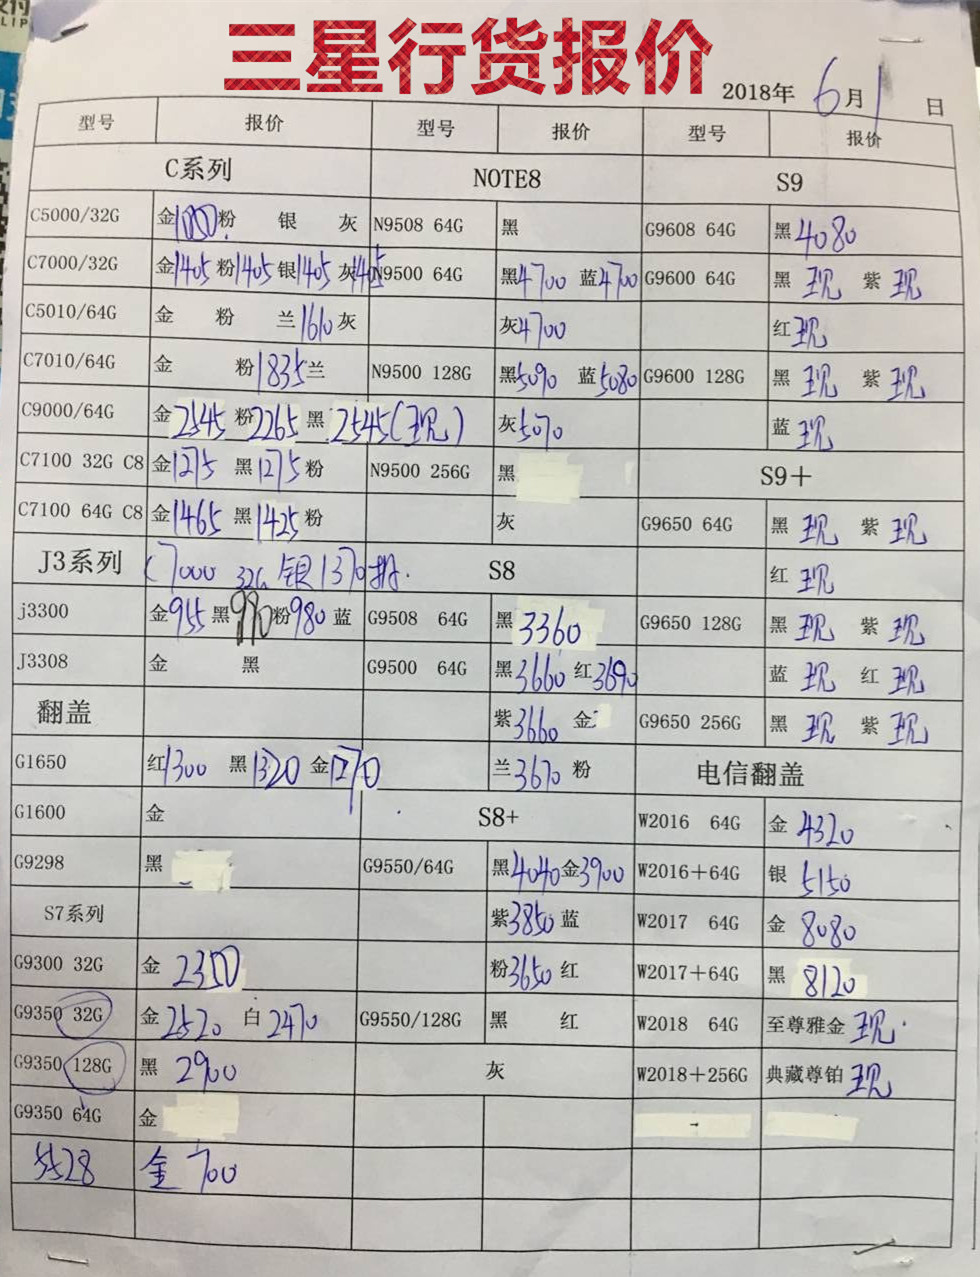 三星行货报价
2018年 6月 1 日
型号 报价 型号 报价 型号 报价
C系列 NOTE8 S9
C5000/32G 金 粉 银 灰 N9508 64G 黑 G9608 64G 黑4080
C7000/32G 金1405 粉1405 银1405 灰1405 N9500 64G 黑4700 蓝4700 G9600 64G 黑 现 紫 现
C5010/64G 金 粉 兰1610 灰 灰4700 红现
C7010/64G 金 粉1835 兰 N9500 128G 黑5090 蓝5080 G9600 128G 黑 现 紫 现
C9000/64G 金2545 粉2265 黑 2545(现) 灰5070 蓝 现
C7100 32G C8 金1275 黑1275 粉 N9500 256G 黑 S9+
C7100 64G C8 金1465 黑1425 粉 灰 G9650 64G 黑 现 紫 现
J3系列 C7000 32G 银1370 S8 红 现
j3300 金955 黑990 粉980 蓝 G9508 64G 黑3360 G9650 128G 黑 现 紫 现
J3308 金 黑 G9500 64G 黑3660 红3690 蓝 现 红 现
翻盖 紫3660 金 G9650 256G 黑 现 紫 现
G1650 红1300 黑1320 金1270 兰3670 粉 电信翻盖
G1600 金 S8+ W2016 64G 金 4320
G9298 黑 G9550/64G 黑4040 金3900 W2016+64G 银 5150
S7系列 紫3850 蓝 W2017 64G 金 8080
G9300 32G 金 2350 粉3650 红 W2017+64G 黑 8120
G9350 32G 金2520 白2470 G9550/128G 黑 红 W2018 64G 至尊雅金 现
G9350 128G 黑 2900 灰 W2018+256G 典藏尊铂 现
G9350 64G 金
5528 金 700